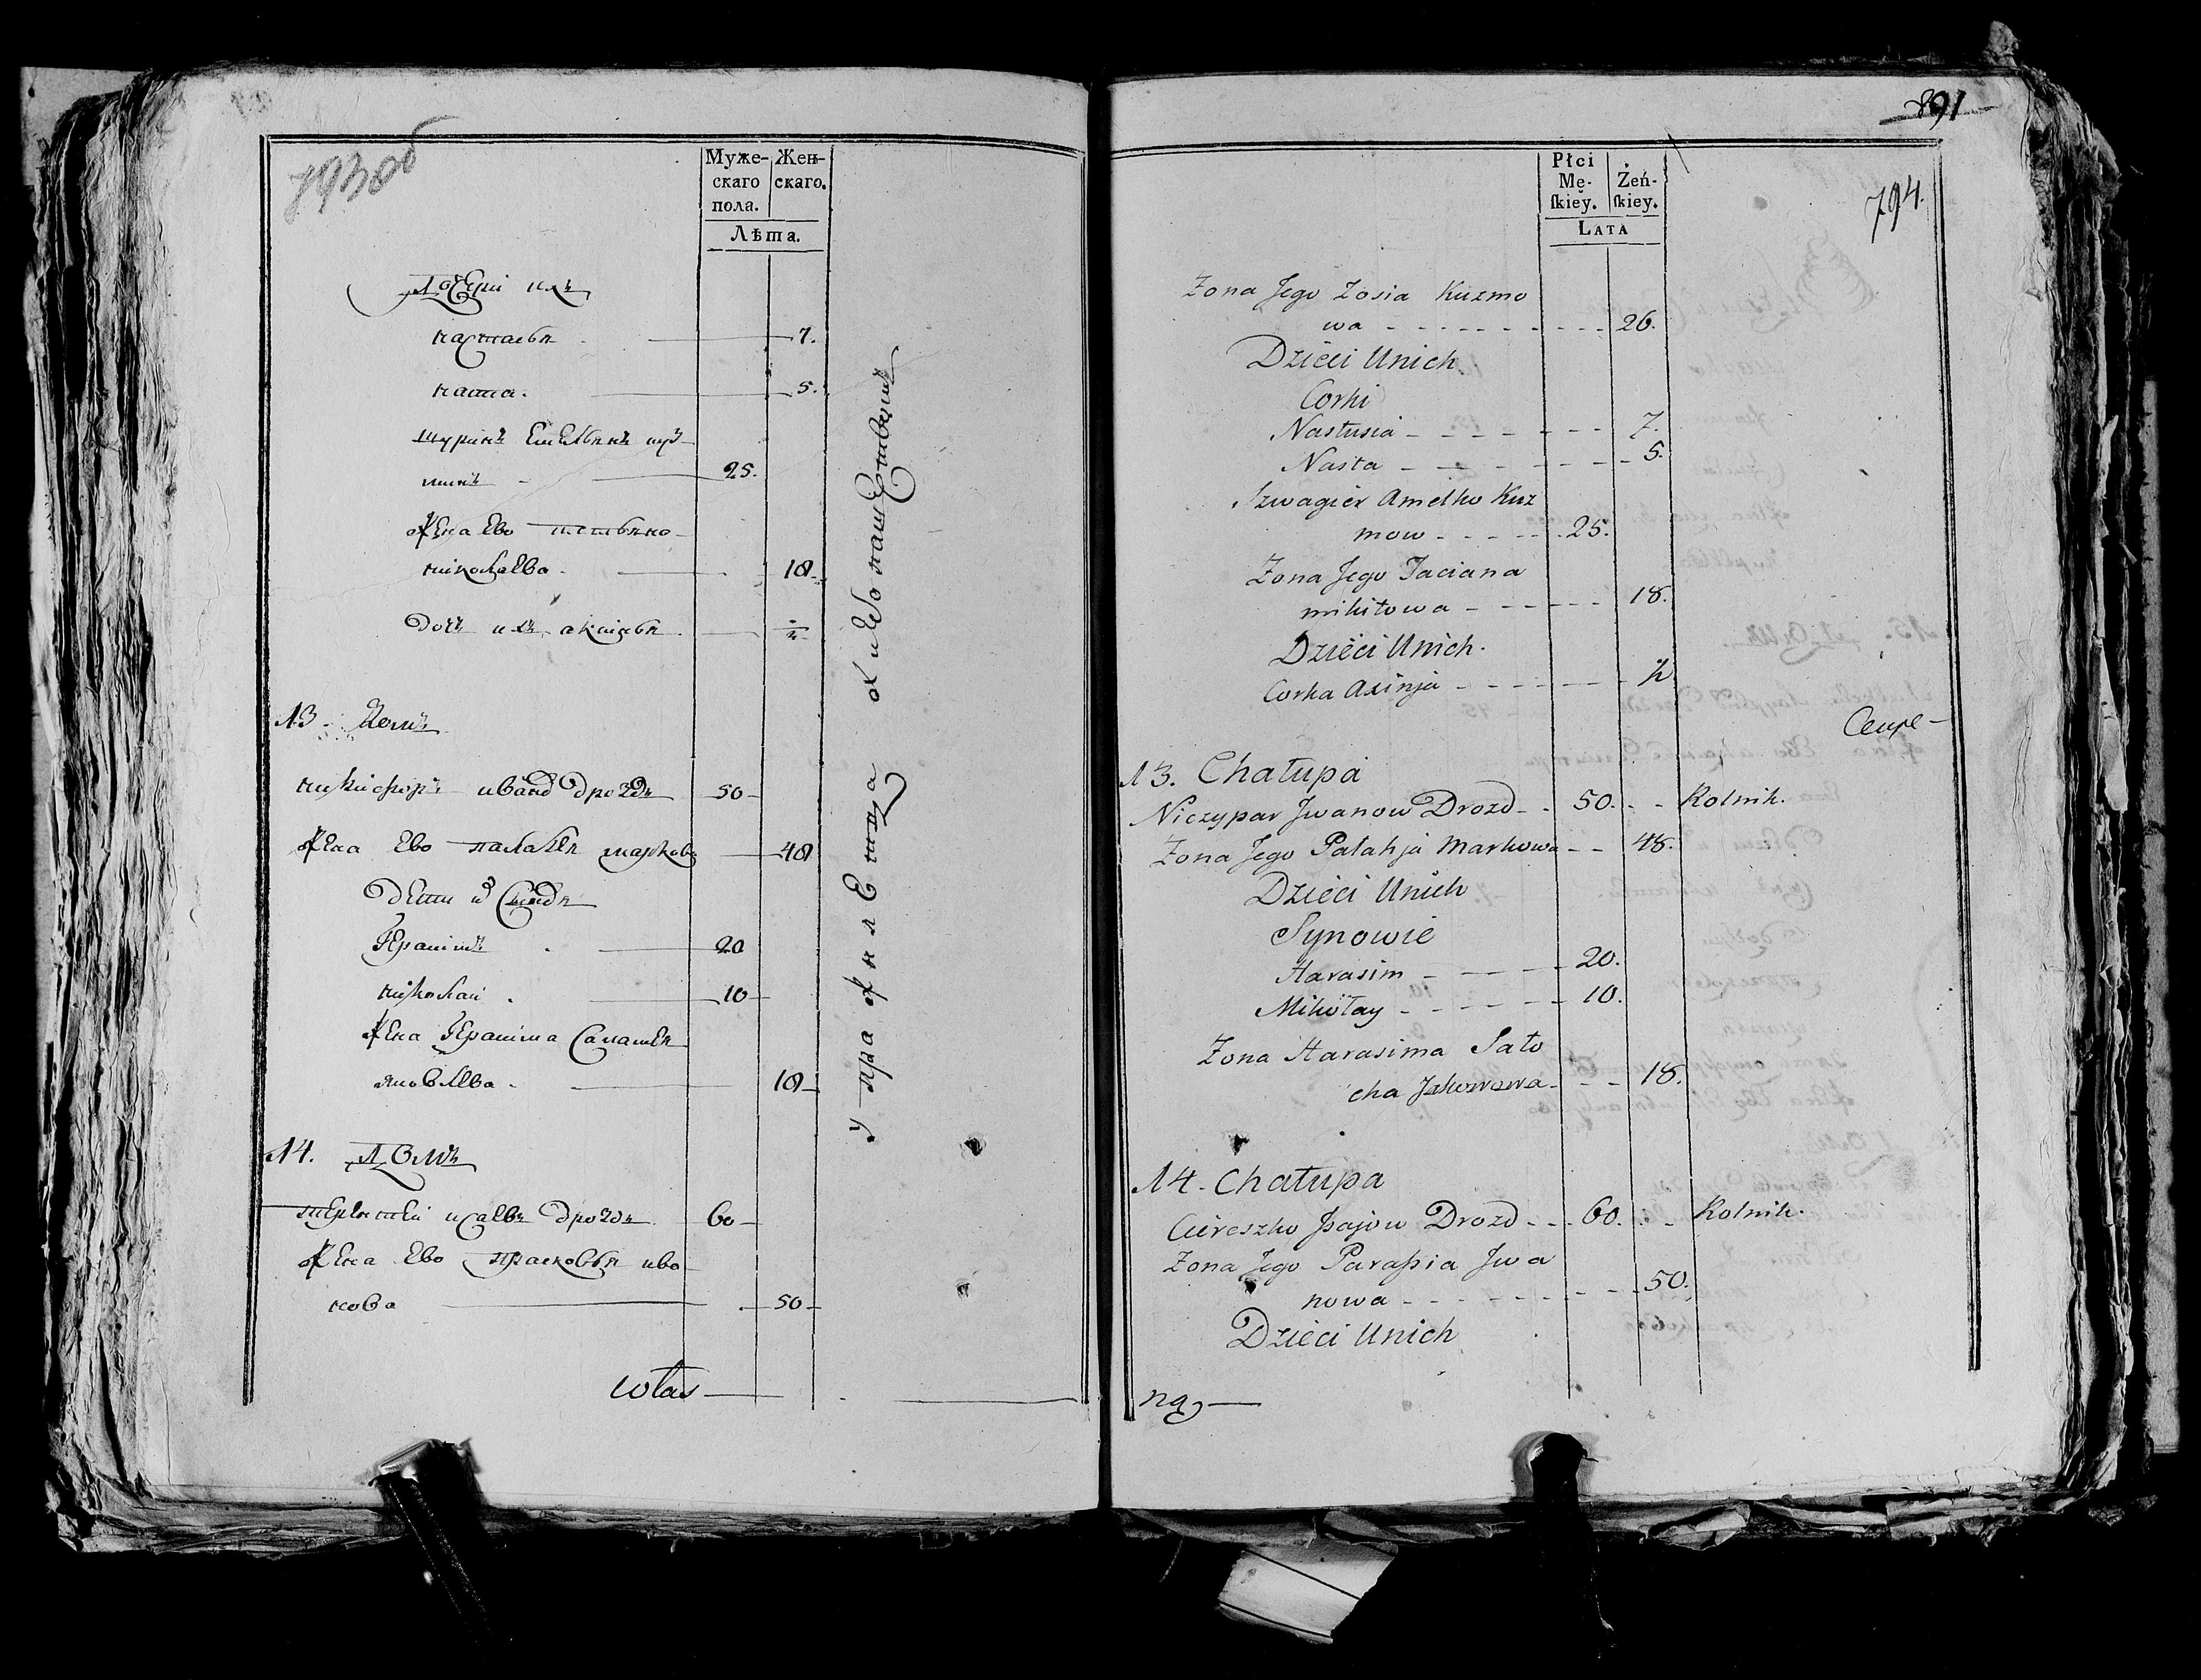 793 об
Муже-
скаго
пола.
Жен-
скаго.
Лѣта.
Дочери ихъ
настасья 7.
наста. 5.
шуринъ Емельянъ куз
минъ 25.
жена Ево татьяна
николаева 18.
дочь ихъ аксинья ½
13. Домъ
никифоръ иванъ Дроздъ 50
жена Ево палагея маркова 48
Дети
Герасимъ 20
николай 10
жена Герасима Саламея
яковлева 18
14. Домъ
терентей исаевъ дроздъ 60
жена Ево прасковья ива
нова 50
упражняется хлебопашествомъ
891
794.
Płci
Mę-
ſkiey.
Żeń-
ſkiey.
LATA
Żona Jego Zosia Kuzmo
wa 26.
Dzieci Unich
Corki
Nastusia 7.
Nasta 5.
Szwagier Amelko Kuz
mow 25.
Żona Jego Taciana
mikitowa 18.
Dzieci Unich.
Corka Axinja ½
13. Chałupa
Niczypar Jwanow Drozd 50. Rolnik.
Żona Jego Pałahja Markowa 48.
Dzieci Unich
Synowie
Harasim 20.
Mikołay 10.
Żona Harasima Sało
cha Jakowowa 18.
14. Chałupa
Ciereszko Jsajow Drozd 60. Rolnik.
Żona Jego Parasia Jwa
nowa 50.
Dzieci Unich